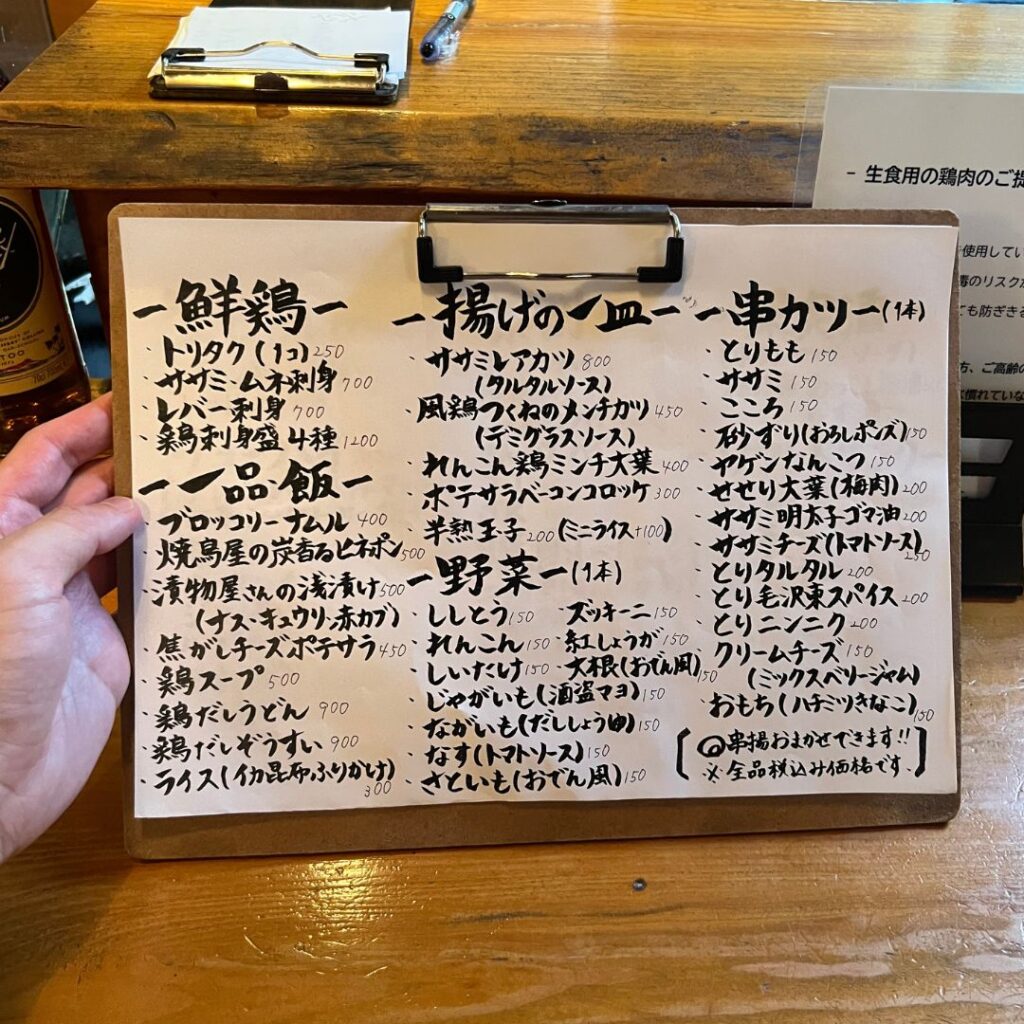 - 生食用の鶏肉のご提
使用してい
毒のリスクが
ても防ぎきる
方、ご高齢の
慣れていな
ー鮮鶏ー
・トリタク(1コ) 250
・ササミ・ムネ刺身 700
・レバー刺身 700
・鶏刺身盛4種 1200
ー一品・飯ー
・ブロッコリーナムル 400
・焼鳥屋の炭香るヒネポン 500
・漬物屋さんの浅漬け 500
(ナス・キュウリ・赤カブ)
・焦がしチーズポテサラ 450
・鶏スープ 500
・鶏だしうどん 900
・鶏だしぞうすい 900
・ライス(イカ昆布ふりかけ)
300
ー揚げの一皿ー
・ササミレアカツ 800
(タルタルソース)
・風鶏つくねのメンチカツ 450
(デミグラスソース)
・れんこん鶏ミンチ大葉 400
・ポテサラベーコンコロッケ 300
・半熟玉子 200(ミニライス+100)
ー野菜ー(1本)
・ししとう 150 ・ズッキーニ 150
・れんこん 150 ・紅しょうが 150
・しいたけ 150 ・大根(おでん風) 150
・じゃがいも(酒盗マヨ) 150
・ながいも(だししょう油) 150
・なす(トマトソース) 150
・さといも(おでん風) 150
ー串カツー(1本)
・とりもも 150
・ササミ 150
・こころ 150
・砂ずり(おろしポンズ) 150
・ヤゲンなんこつ 150
・せせり大葉(梅肉) 200
・ササミ明太子ゴマ油 200
・ササミチーズ(トマトソース)
250
・とりタルタル 200
・とり毛沢東スパイス 200
・とりニンニク 200
・クリームチーズ 150
(ミックスベリージャム)
・おもち(ハチミツきなこ) 150
◎串揚おまかせできます!!
※全品税込み価格です。